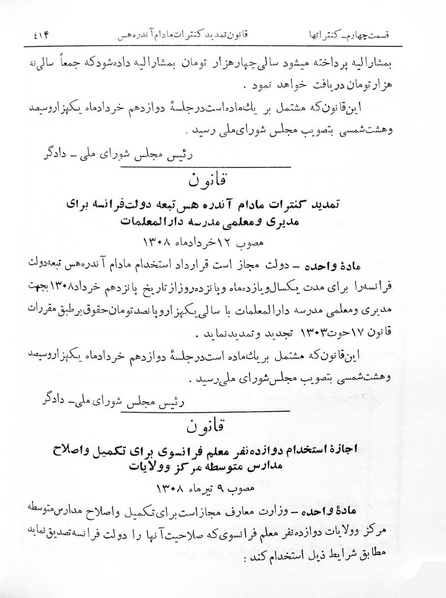 قسمت چهارم ـ کنتراتها قانون تمدید کنترات مادام آندره هس ٤١٤
بمشارالیه پرداخته میشود سالی چهار هزار تومان بمشارالیه داده شود که جمعاً سالی نه
هزار تومان دریافت خواهد نمود .
این قانون که مشتمل بر یک ماده است در جلسهٔ دوازدهم خرداد ماه یکهزار و سیصد
و هشت شمسی بتصویب مجلس شورای ملی رسید .
رئیس مجلس شورای ملی ـ دادگر
قانون
تمدید کنترات مادام آندره هس تبعه دولت فرانسه برای
مدیری و معلمی مدرسه دارالمعلمات
مصوب ۱۲ خرداد ماه ۱۳۰۸
مادهٔ واحده ـ دولت مجاز است قرارداد استخدام مادام آندره هس تبعه دولت
فرانسه را برای مدت یکسال و یازده ماه و پانزده روز از تاریخ پانزدهم خرداد ۱۳۰۸ بجهت
مدیری و معلمی مدرسه دارالمعلمات با سالی یکهزار و پانصد تومان حقوق بر طبق مقررات
قانون ۱۷ حوت ۱۳۰۳ تجدید و تمدید نماید .
این قانون که مشتمل بر یک ماده است در جلسهٔ دوازدهم خرداد ماه یکهزار و سیصد
و هشت شمسی بتصویب مجلس شورای ملی رسید .
رئیس مجلس شورای ملی ـ دادگر
قانون
اجازهٔ استخدام دوازده نفر معلم فرانسوی برای تکمیل و اصلاح
مدارس متوسطه مرکز و ولایات
مصوب ۹ تیر ماه ۱۳۰۸
مادهٔ واحده ـ وزارت معارف مجاز است برای تکمیل و اصلاح مدارس متوسطه
مرکز و ولایات دوازده نفر معلم فرانسوی که صلاحیت آنها را دولت فرانسه تصدیق نماید
مطابق شرایط ذیل استخدام کند :